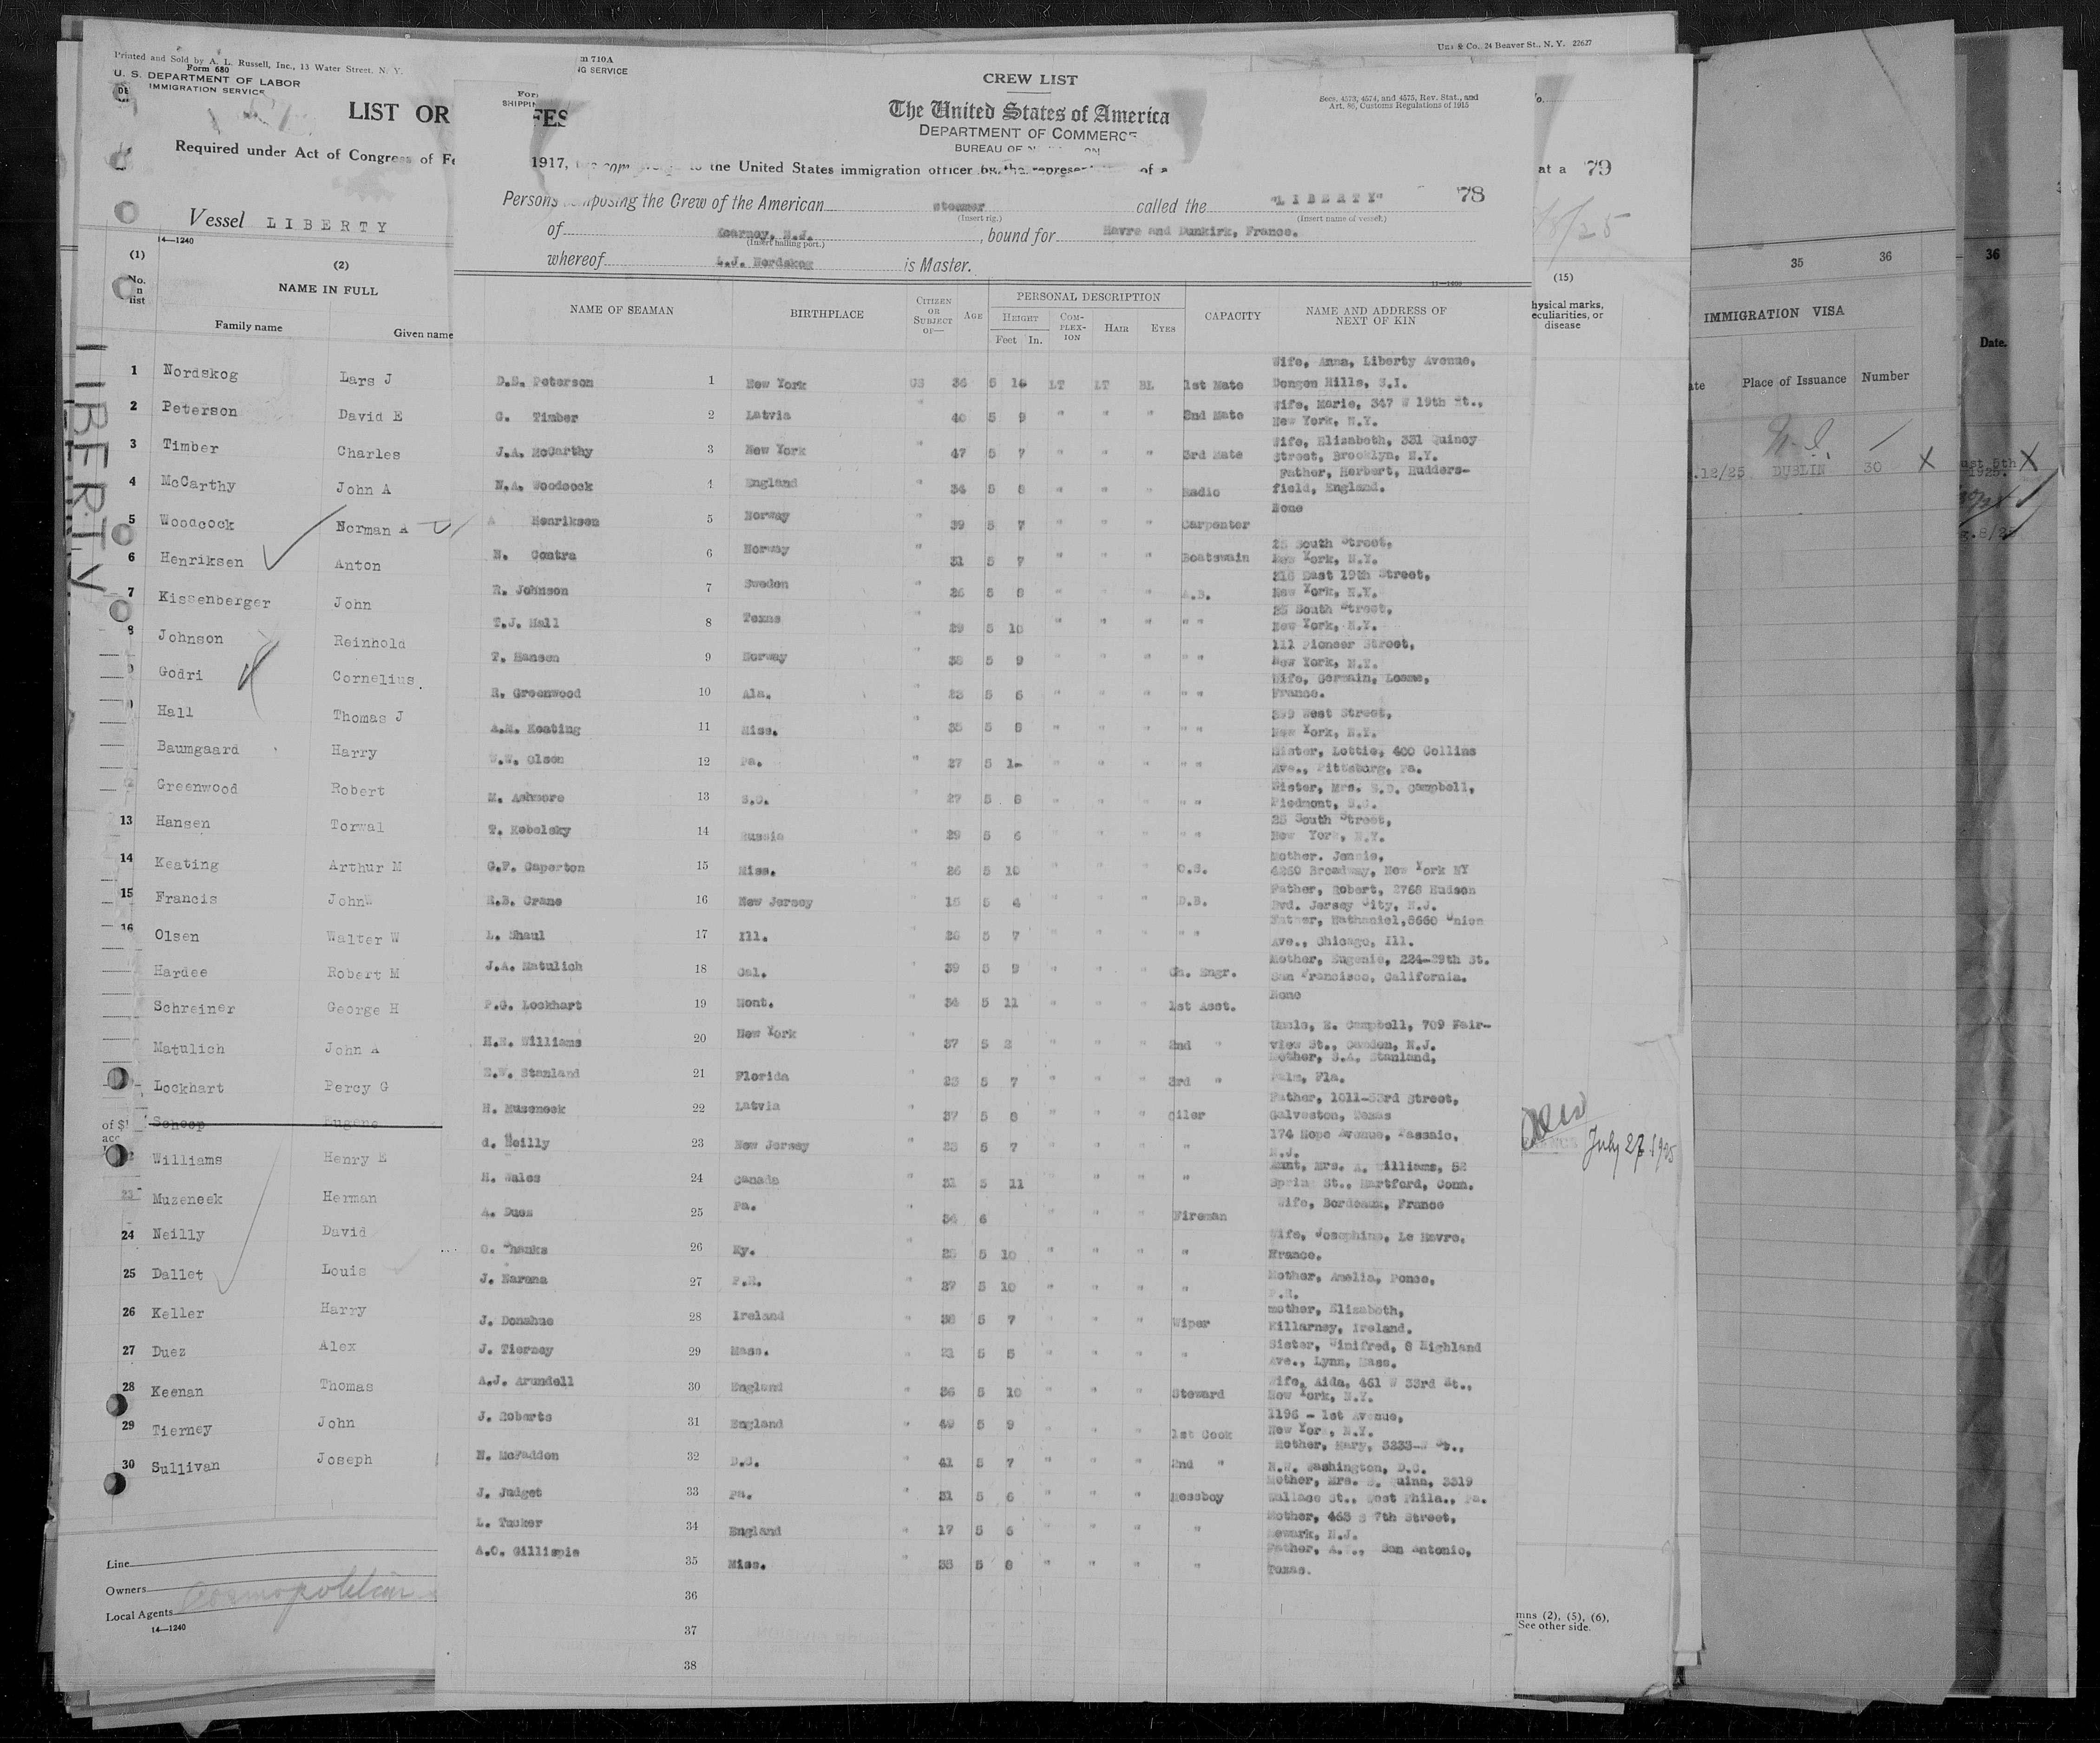 Printed and Sold by A. L. Russell, Inc., 13 Water Street, N. Y.
Form 680
U. S. DEPARTMENT OF LABOR
IMMIGRATION SERVICE
LIST OR
Required under Act of Congress of
Vessel LIBERTY
14—1240
(1)
(2)
No.
list
NAME IN FULL
Family name
Given name
LIBERTY
1 Nordskog Lars J
2 Peterson David E
3 Timber Charles
4 McCarthy John A
5 Woodcock Norman A
6 Henriksen Anton
7 Kissenberger John
8 Johnson Reinhold
Godri Cornelius.
Hall Thomas J
Baumgaard Harry
Greenwood Robert
13 Hansen Torwal
14 Keating Arthur M
15 Francis JohnW
16 Olsen Walter W
Hardee Robert M
Schreiner George H
Matulich John A
Lockhart Percy G
Schoop Eugene
Williams Henry E
23 Muzeneek Herman
24 Neilly David
25 Dallet Louis
26 Keller Harry
27 Duez Alex
28 Keenan Thomas
29 Tierney John
30 Sullivan Joseph
Line
Owners Cosmopolitan
Local Agents
14—1240
Uns & Co., 24 Beaver St., N. Y. 22627
m 710A
NG SERVICE
CREW LIST
Secs. 4573, 4574, and 4575, Rev. Stat., and
Art. 86, Customs Regulations of 1915
The United States of America
DEPARTMENT OF COMMERCE
BUREAU OF
1917, to the United States immigration officer by the of a
at a 79
Persons composing the Crew of the American steamer called the "LIBERTY" 78
(Insert rig.)
(Insert name of vessel.)
of Kearney, N.J., bound for Havre and Dunkirk, France.
(Insert hailing port.)
whereof L.J. Nordskog is Master.
11—1409
NAME OF SEAMAN
BIRTHPLACE
CITIZEN OR SUBJECT OF—
AGE
PERSONAL DESCRIPTION
HEIGHT
Feet In.
COMPLEXION
HAIR
EYES
CAPACITY
NAME AND ADDRESS OF NEXT OF KIN
D.E. Peterson 1 New York US 36 5 10 LT LT BL 1st Mate Wife, Anna, Liberty Avenue, Dongen Hills, S.I.
C. Timber 2 Latvia " 40 5 9 " " " 2nd Mate Wife, Marie, 347 W 19th St., New York, N.Y.
J.A. McCarthy 3 New York " 47 5 7 " " " 3rd Mate Wife, Elizabeth, 331 Quincy Street, Brooklyn, N.Y.
N.A. Woodcock 4 England " 34 5 8 " " " Radio Father, Herbert, Huddersfield, England.
A Henriksen 5 Norway " 39 5 7 " " " Carpenter None
N. Contra 6 Norway " 31 5 7 " " " Boatswain 25 South Street, New York, N.Y.
R. Johnson 7 Sweden " 26 5 8 " " " A.B. 216 East 19th Street, New York, N.Y.
T.J. Hall 8 Texas " 29 5 10 " " " " " 25 South Street, New York, N.Y.
T. Hansen 9 Norway " 38 5 9 " " " " " 111 Pioneer Street, New York, N.Y.
R. Greenwood 10 Ala. " 23 5 6 " " " " " Wife, Germain, France.
A.M. Keating 11 Miss. " 35 5 8 " " " " " 399 West Street, New York, N.Y.
W.W. Olson 12 Pa. " 27 5 " " " " " Sister, Lottie, 400 Collins Ave., Pittsburg, Pa.
M. Ashmore 13 S.C. " 27 5 8 " " " " " Sister, Mrs. E.D. Campbell, Piedmont, S.C.
T. Kobelsky 14 Russia " 29 5 6 " " " " " 25 South Street, New York, N.Y.
G.F. Caperton 15 Miss. " 26 5 10 " " " O.S. Mother. Jennie, 4260 Broadway, New York NY
R.B. Crane 16 New Jersey " 18 5 4 " " " D.B. Father, Robert, 2768 Hudson Bvd. Jersey City, N.J.
L. Shaul 17 Ill. " 26 5 7 " " " " " Father, Nathaniel, 5660 Union Ave., Chicago, Ill.
J.A. Matulich 18 Cal. " 39 5 9 " " " Ch. Engr. Mother, Eugenie, 224-29th St. San Francisco, California.
P.G. Lockhart 19 Mont. " 34 5 11 " " " 1st Asst. None
H.E. Williams 20 New York " 37 5 2 " " " 2nd " Uncle, E. Campbell, 709 Fairview St., Camden, N.J.
E.W. Stanland 21 Florida " 23 5 7 " " " 3rd " Mother, S.A. Stanland, Palm, Fla.
H. Museneek 22 Latvia " 37 5 8 " " " Oiler Father, 1011-53rd Street, Galveston, Texas
d. Neilly 23 New Jersey " 23 5 7 " " " " 174 Hope Avenue, Passaic, N.J.
H. Wales 24 Canada " 31 5 11 " " " " Aunt, Mrs. A. Williams, 52 Spring St., Hartford, Conn.
A. Dues 25 Pa. " 34 6 " " " Fireman Wife, Bordeaux, France
O. Shanks 26 Ky. " 28 5 10 " " " " Wife, Josephine, Le Havre, France.
J. Narana 27 P.R. " 27 5 10 " " " " Mother, Amelia, Ponce, P.R.
J. Donahue 28 Ireland " 38 5 7 " " " Wiper mother, Elizabeth, Killarney, Ireland.
J. Tierney 29 Mass. " 21 5 5 " " " " Sister, Winifred, 8 Highland Ave., Lynn, Mass.
A.J. Arundell 30 England " 36 5 10 " " " Steward Wife, Aida, 461 W 33rd St., New York, N.Y.
J. Roberts 31 England " 49 5 9 " " " 1st Cook 1196 - 1st Avenue, New York, N.Y.
N. McFadden 32 D.C. " 41 5 7 " " " 2nd " Mother, Mary, N.W. Washington, D.C.
J. Judget 33 Pa. " 31 5 6 " " " Messboy Mother, Mrs. B. Quinn, 3319 Wallace St., West Phila., Pa.
L. Tucker 34 England " 17 5 6 " " " " Mother, 463 S 7th Street, Newark, N.J.
A.C. Gillispie 35 Miss. " 38 5 8 " " " " Father, San Antonio, Texas.
36
37
38
(15)
hysical marks,
eculiarities, or
disease
July 27 1925
mns (2), (5), (6),
See other side.
35
36
IMMIGRATION VISA
ate
Place of Issuance
Number
.12/25 DUBLIN 30 X
36
Date.
ust 5th X
1925.
g.8/25